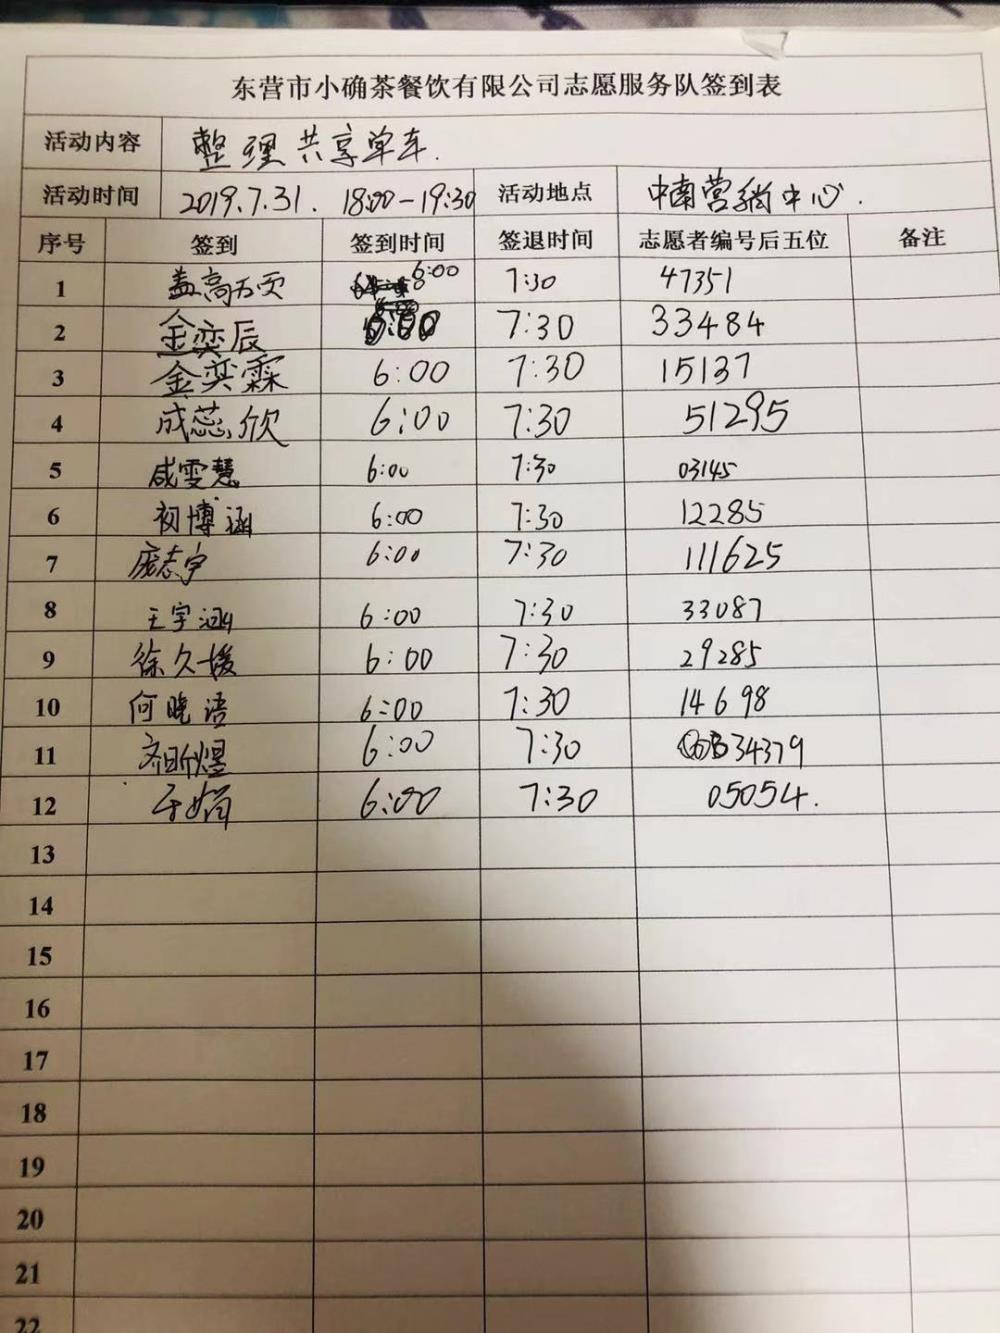 东营市小确茶餐饮有限公司志愿服务队签到表
活动内容 整理共享单车.
活动时间 2019.7.31. 18:00-19:30 活动地点 中南营销中心.
序号 签到 签到时间 签退时间 志愿者编号后五位 备注
1 盖高 6:00 7:30 47351
2 金奕辰 6:00 7:30 33484
3 金奕霖 6:00 7:30 15137
4 成蕊欣 6:00 7:30 51295
5 咸雯慧 6:00 7:30 03145
6 初博涵 6:00 7:30 12285
7 庞志宇 6:00 7:30 111625
8 王宇涵 6:00 7:30 33087
9 徐久媛 6:00 7:30 29285
10 何晓语 6:00 7:30 14698
11 齐昕煜 6:00 7:30 34379
12 于娟 6:00 7:30 05054.
13
14
15
16
17
18
19
20
21
22